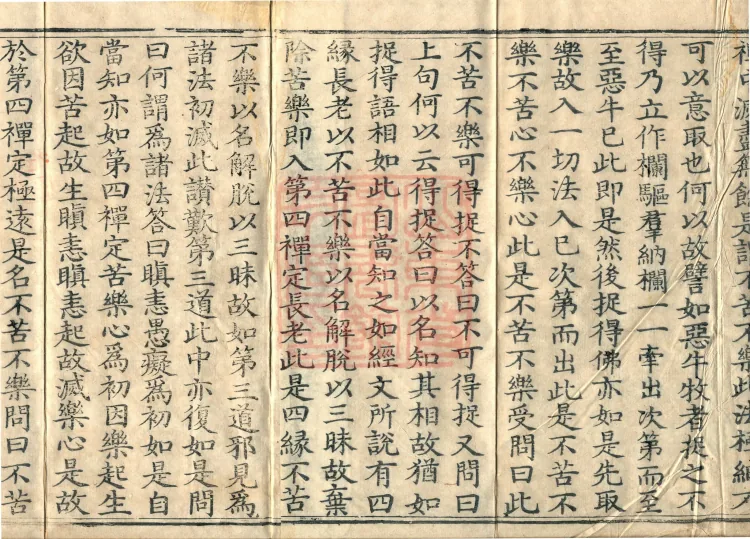 滅盡無餘是謂不苦不樂此法極細
可以意取也何以故譬如惡牛牧者捉之不
得乃立作欄驅羣納欄一一牽出次第而至
至惡牛已此即是然後捉得佛亦如是先取
樂故入一切法入已次第而出此是不苦不
樂不苦心不樂心此是不苦不樂受問曰此
不苦不樂可得捉不答曰不可得捉又問曰
上句何以云得捉答曰以名知其相故猶如
捉得語相如此自當知之如經文所說有四
緣長老以不苦不樂以名解脫以三昧故棄
除苦樂即入第四禪定長老此是四緣不苦
不樂以名解脫以三昧故如第三道邪見爲
諸法初滅此讚歎第三道此中亦復如是問
曰何謂爲諸法答曰瞋恚愚癡爲初如是自
當知亦如第四禪定苦樂心爲初因樂起生
欲因苦起故生瞋恚瞋恚起故滅樂心是故
於第四禪定極遠是名不苦不樂問曰不苦